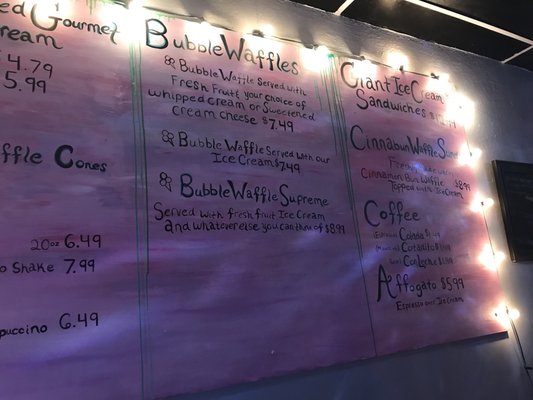 ed Gourmet
eam
4.79
5.99
ffle Cones
20oz 6.49
o Shake 7.99
puccino 6.49
Bubble Waffles
Bubble Waffle Served with
Fresh Fruit, your choice of
whipped cream or Sweetened
cream cheese $7.49
Bubble Waffle Served with our
Ice Cream $7.49
Bubble Waffle Supreme
Served with fresh fruit Ice Cream
and whatever else you can think of $8.99
Giant Ice Cream
Sandwiches
Cinnabun Waffle
Cinnamon Bun Waffle $8.99
Topped with Ice Cream
Coffee
Colada
Cortadito
Con Leche
Affogato $5.99
Espresso over Ice Cream